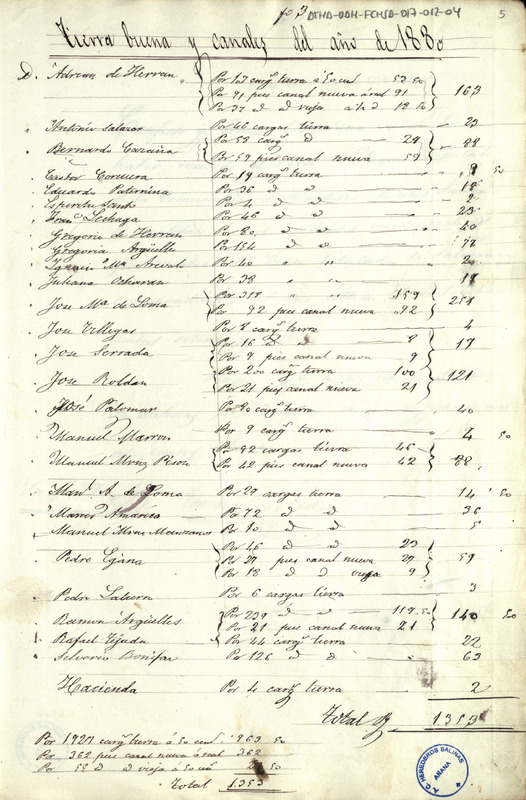 fo 3 ATHA-DAH-FCHSA-017-012-04
5
Tierra buena y canales del año de 1880
D. Adrian de Herran Por 107 cargs tierra á 50 cnt 53 50
Por 91 pies canal nueva á real 91 163
Por 37 d d vieja á ½ d 18 50
" Antonio Salazar Por 46 cargas tierra 23
" Bernardo Por 58 cargs d 29 88
Por 59 pies canal nueva 59
Castor Corcuera Por 19 cargs tierra 9 50
Eduardo Paternina Por 36 d d 18
Espiritu Santo Por 4 d d 2
Franco Lechaga Por 46 d d 23
Gregorio de Herran Por 80 d d 40
Gregoria Argüelles Por 154 d d 77
Ignacio Ma Por 40 " " 20
Juliana Por 38 " " 19
Jose Ma de Loma Por 318 " " 159 251
Por 92 pies canal nueva 92
Jose Villegas Por 8 cargs tierra 4
Jose Serrada Por 16 d 8 17
Por 9 pies canal nueva 9
Jose Roldan Por 200 cargs tierra 100 121
Por 21 pies canal nueva 21
José Palomar Por 80 cargs tierra 40
Manuel Marron Por 9 cargs tierra 4 50
Manuel Por 92 cargas tierra 46 88
Por 42 pies canal nueva 42
Manl A. de Loma Por 29 cargas tierra 14 50
Marcos Por 72 d d 36
Manuel Manzanos Por 10 d d 5
Pedro Por 46 d d 23
Por 27 pies canal nueva 27 59
Por 18 d d vieja 9
Pedro Por 6 cargas tierra 3
Ramon Argüelles Por 239 d d 119 50 140 50
Por 21 pies canal nueva 21
Rafael Tejada Por 44 cargs tierra 22
Silverio Bonifaz Por 126 d d 63
Hacienda Por 4 cargs tierra 2
Total 1353
Por 1927 cargs tierra á 50 cent 963 50
Por 362 pies canal nueva á real 362
Por d d vieja á 50 cnt 50
Total 1353
A.C. HEREDEROS SALINAS
ARANA